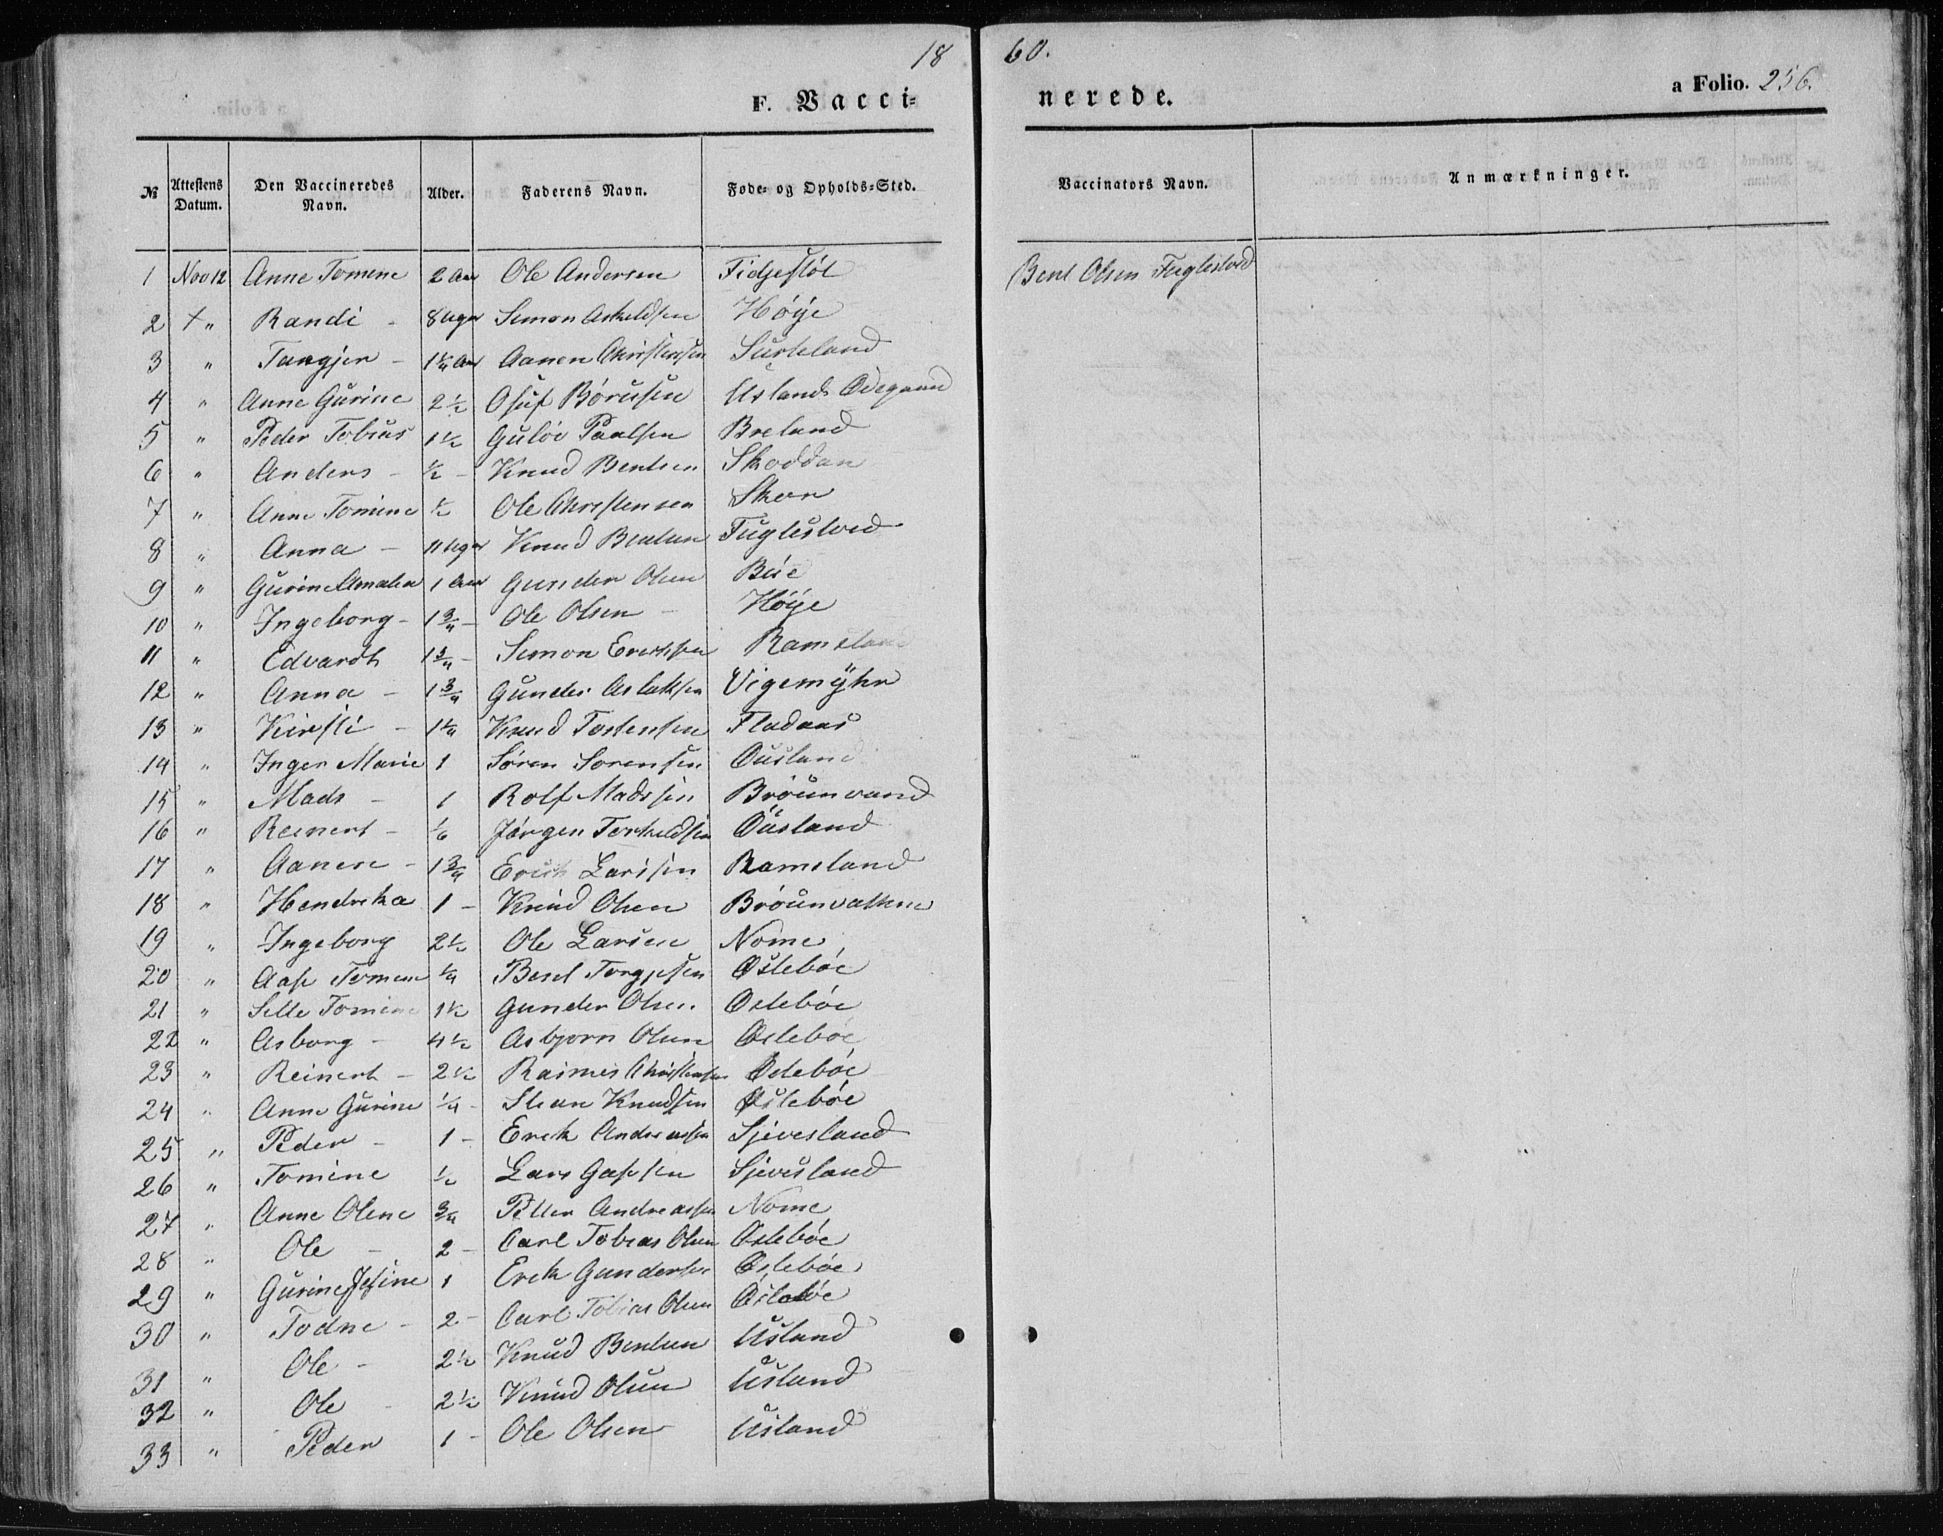 18 60.
F. Vacci= nerede. a Folio. 256.
№ Attestens Datum. Den Vaccineredes Navn. Alder. Faderens Navn. Føde- og Opholds-Sted. Vaccinators Navn. Anmærkninger.
1 Nov 12 Anne Tomine 2 Aar Ole Andersen Fidjestøl Bent Olsen Fuglestved
2 + " Randi - 8 Uger Simon Askeldsen Høÿe
3 " Tangjer - 1¼ Aar Aanen Christensen Surteland
4 " Anne Gurine 2½ Osuf Børusen Usland Ødegaard
5 " Peder Tobias 1½ Guløv Paalsen Breland
6 " Anders - ½ - Knud Bentsen Skoddan
7 " Anne Tomine ½ Ole Christensen Skov
8 " Anna - 11 Uger Knud Bentsen Fuglestved
9 " Gurine Amalia 1 Aar Gunder Olsen Bue
10 " Ingeborg - 1¾ - Ole Olsen - Høÿe
11 " Edvardt 1¾ - Simon Ericksen Ramsland
12 " Anna - 1¾ Gunder Aslaksen Vigemÿhr
13 " Kirsti - 1¼ Knud Tostensen Fladaas
14 " Inger Marie 1 Søren Sorensen Ousland
15 " Mads - 1 Rolf Madssen Brøunvand
16 " Reinert - ⅙ Jørgen Torkeldsen Ousland
17 " Aanen - 1¾ Erick Larssen Ramsland
18 " Hendrika 1 - Knud Olsen Brøunvathne
19 " Ingeborg 2½ Ole Larsen Nome
20 " Aase Tomine ¼ Bent Torgjesen Øslebøe
21 " Sille Tomine 1½ Gunder Olsen Øslebøe
22 " Asborg - 4½ Asbjorn Olsen Øslebøe
23 " Reinert - 2½ Rasmus Christensen Øslebøe
24 " Anne Gurine ¼ - Stean Knudsen Øslebøe
25 " Peder - 1 - Erick Andreassen Sjevesland
26 " Tomine ½ Lars Gabsen Sjevesland
27 " Anne Olene ¾ Petter Andreassen Nome
28 " Ole - 2 - Carl Tobias Olsen Øslebøe
29 " Gurine Jesine 1 Erck Gundersen Øslebøe
30 " Todne - 2 - Carl Tobias Olsen Øslebøe
31 " Ole - 2½ Knud Bentsen Usland
32 " Ole - 2½ Knud Olsen Usland
33 " Peder 1 - Ole Olsen Usland